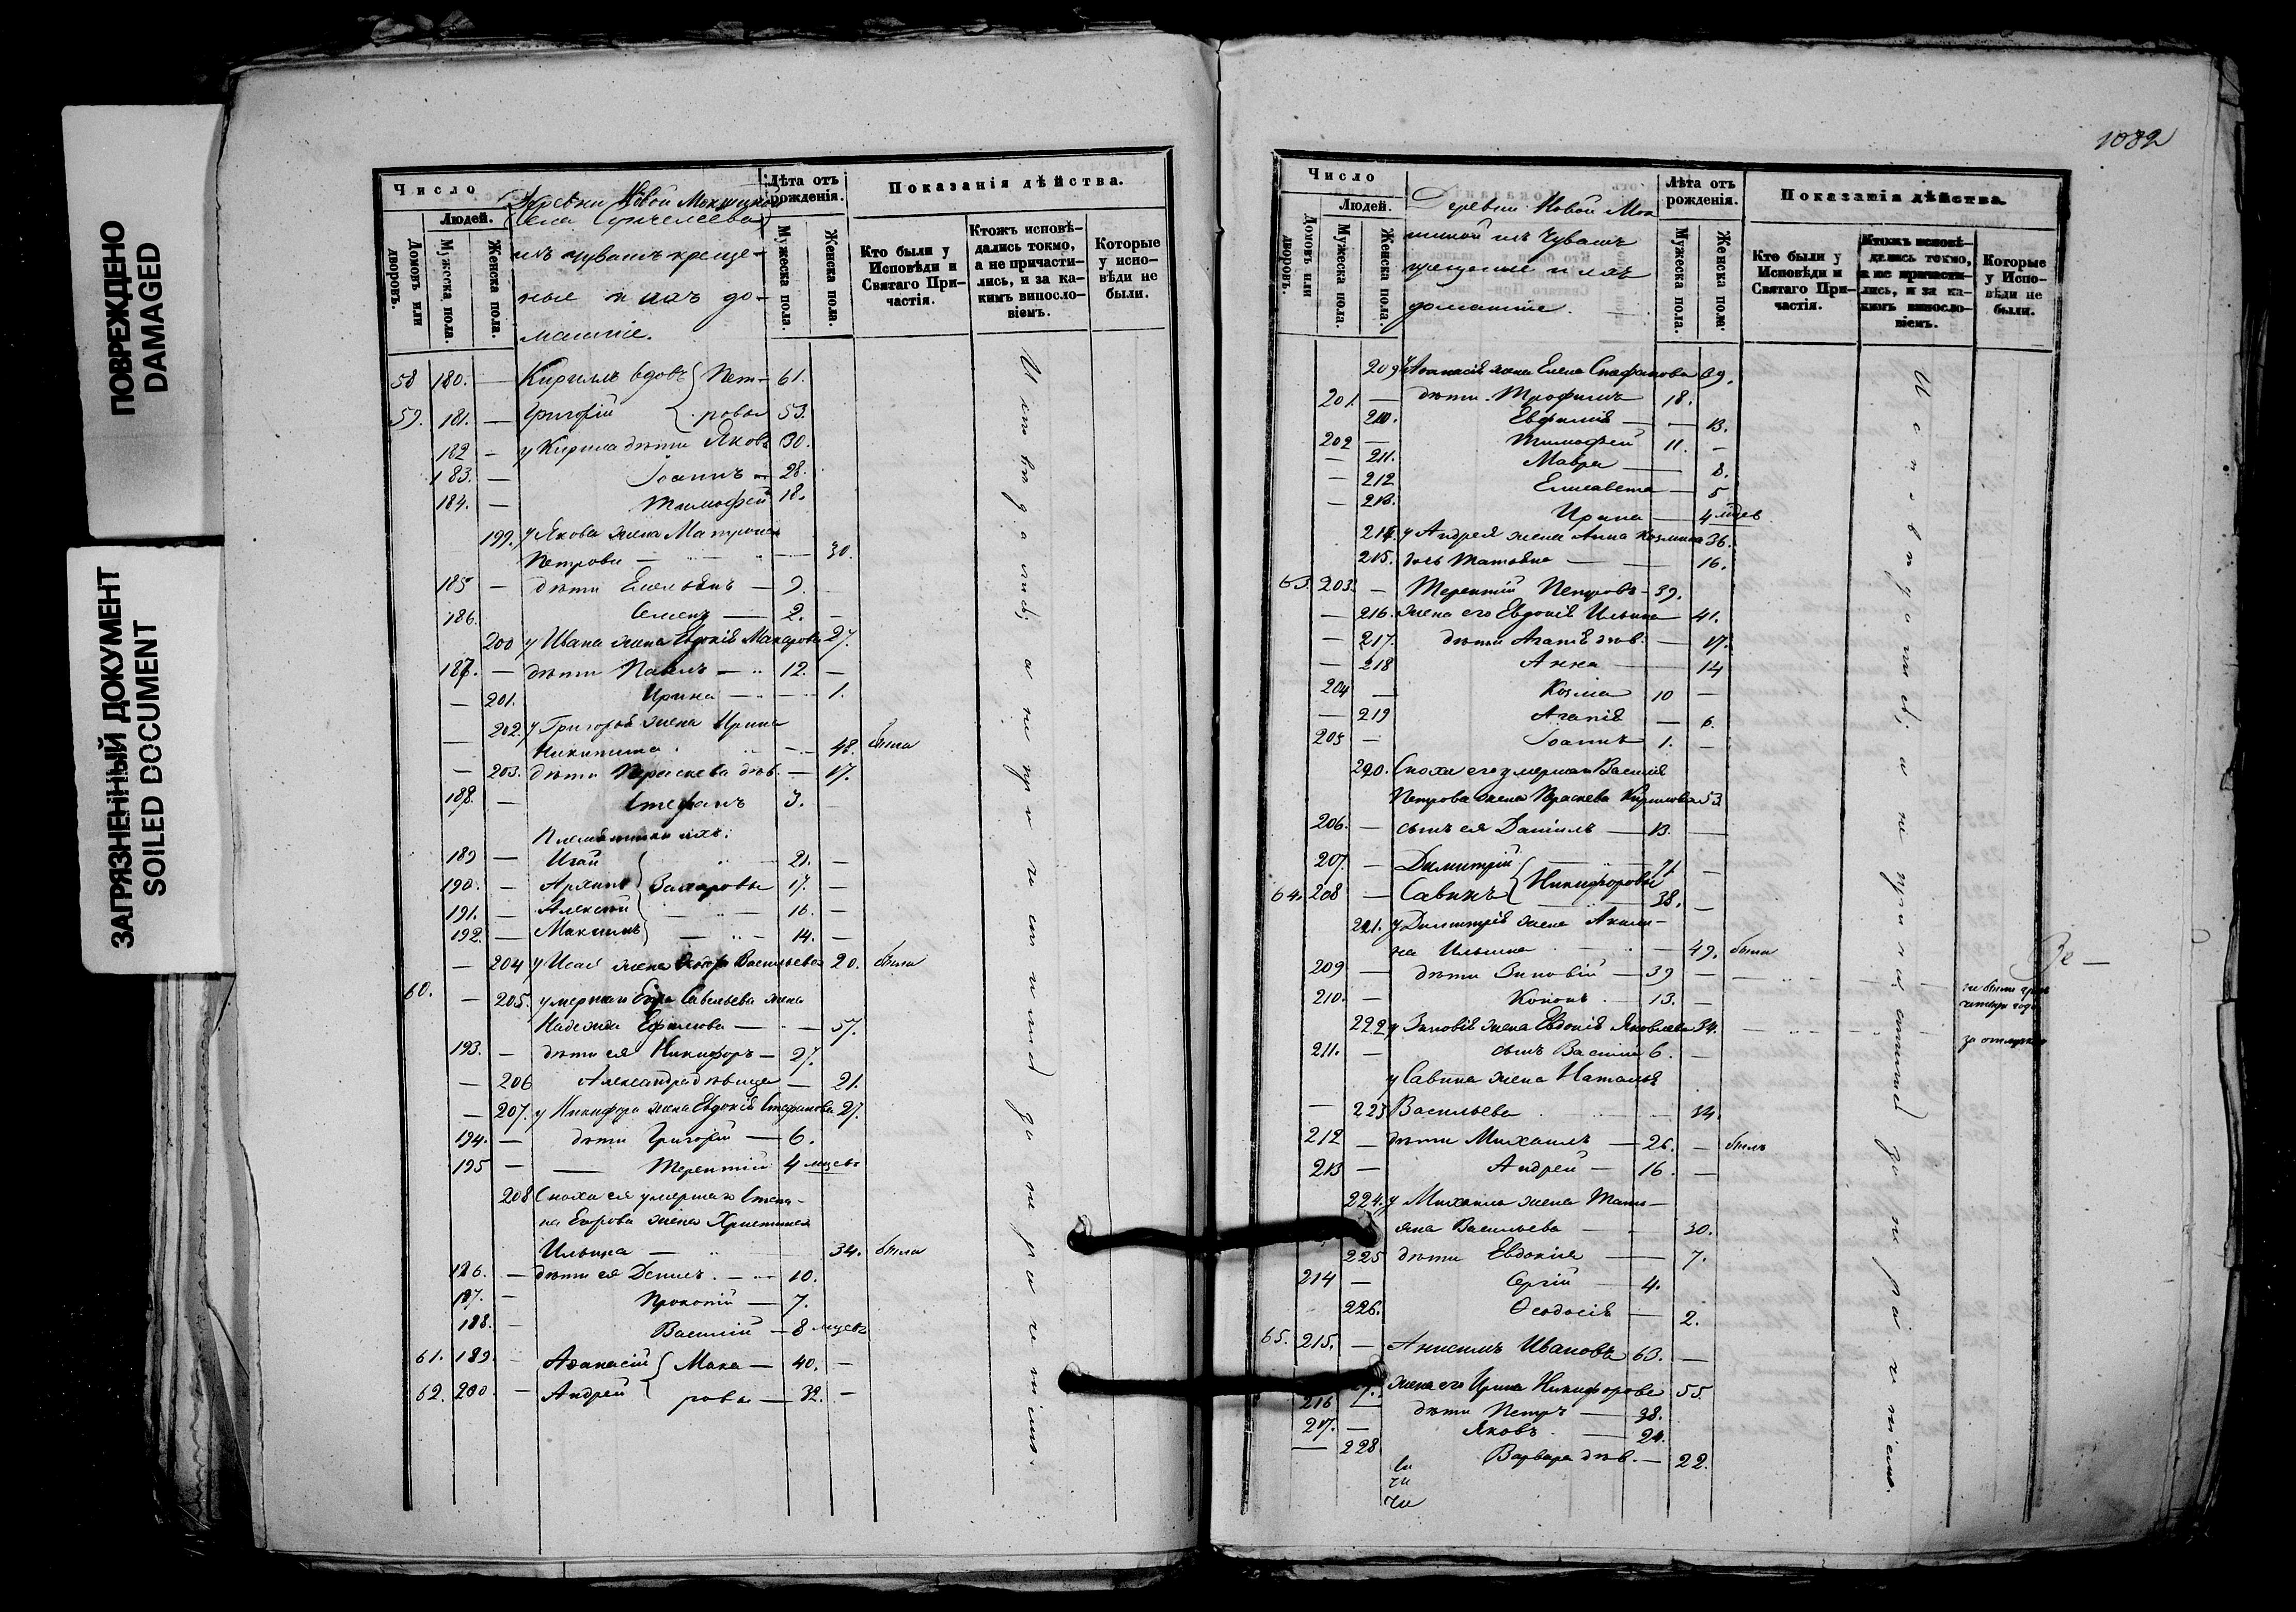 ПОВРЕЖДЕНО
DAMAGED
ЗАГРЯЗНЕННЫЙ ДОКУМЕНТ
SOILED DOCUMENT
Число
Людей.
Домовъ или дворовъ.
Мужеска пола.
Женска пола.
Деревни Новой
(села
изъ чувашъ креще-
ные и ихъ до-
машніе.
Лѣта отъ рожденія.
Мужеска пола.
Женска пола.
Показанія дѣйства.
Кто были у Исповѣди и Святаго При-частія.
Ктожъ исповѣ-дались токмо, а не причасти-лись, и за ка-кимъ винословіемъ.
Которые у испо-вѣди не были.
58 180. — Кирилъ вдовъ } Пет- 61.
59. 181. — Григорій } ровы 53.
182 — у Кирила дѣти Яковъ 30.
183. — Іоаннъ — 28.
184. — Тимофей 18.
199. у Якова жена Матрона
Петрова — 30.
185 — дѣти Емельянъ — 9.
186. Семенъ — 2. —
200 у Ивана жена Евдокія Макарова 27.
187. — дѣти Павелъ — 12. —
— 201. Ирина — 1.
— 202. у Григорія жена Ирина
Никитина. 48. была
— 203. дѣти Параскева дѣв. — 17.
188. — Стефанъ 3. —
Племянники ихъ:
189 — Исай 21. —
190. — Архипъ } Захаровы 17. —
191. — Алексѣй 16. —
192. — Максимъ 14. —
— 204 у Исая жена Васильева 20. была
60. — 205. умершаго Савельева жена
Надежда Ефимова — 57.
193. — дѣти ея Никифоръ — 27.
— 206 Александра дѣвица — 21.
— 207. у Никифора жена Евдокія Стефанова 27.
194. — дѣти Григорій — 6.
195 — Терентій 4 мцевъ
208 Сноха ея умершаго Степа-
на Егорова жена Христина
Ильина — 34. была
186. — дѣти ея Денисъ. — 10.
187. — Прокопій — 7.
188. — Василій — 8 мцевъ
61. 189. — Аѳанасій } Мака — 40. —
62. 200. — Андрей } ровы — 32. —
Исповѣдались, а не причастились за нераченіемъ.
1082
Число
Людей.
Домовъ или дворовъ.
Мужеска пола.
Женска пола.
Деревни Новой Мок
шиной изъ Чувашъ
крещеные и ихъ
домашніе.
Лѣта отъ рожденія.
Мужеска пола.
Женска пола.
Показанія дѣйства.
Кто были у Исповѣди и Святаго При-частія.
Ктожъ исповѣ-дались токмо, а не причасти-лись, и за ка-кимъ винословіемъ.
Которые у Испо-вѣди не были.
209 у Аѳанасія жена Елена Стефанова 39.
201. — дѣти Трофимъ 18.
210. Евфимія — 13.
202 — Тимофей 11. —
— 211. Мавра — 8.
— 212 Елисавета — 5
— 213. Ирина — 4 мцевъ
214. у Андрея жена Анна Козмина 36.
215. дочь Татьяна — 16.
63. 203. — Терентій Петровъ — 39.
— 216. жена его Евдокія Ильина 41.
— 217. дѣти Агапія дѣв. — 17.
— 218 Анна — 14
204 — Козма 10 —
— 219 Агапія — 6.
205 — Іоаннъ 1. —
220. Сноха его умершаго Василія
Петрова жена Праскева Кирилова 53.
206. — сынъ ея Даніилъ — 13. —
207. — Димитрій } 71 —
64. 208 — Савинъ } Никифоровы 38. —
221. у Димитрія жена Акили-
на Ильина — 49. была
209 — дѣти Зиновій — 39 —
не были
210. — Кононъ. — 13. —
222 у Зиновія жена Евдокія Яковлева 34.
за отлучкою
211. — сынъ Василій 6. —
у Савина жена Наталья
— 223 Васильева 34.
212 — дѣти Михаилъ — 26. — былъ
213 — Андрей — 16. —
224. у Михаила жена Тать-
яна Васильева — 30.
225 дѣти Евдокія — 7.
214 — Сергій 4.
226. Ѳеодосія — 2.
65. 215. — Анисимъ Ивановъ 63. —
жена его Ирина Никифорова 55.
216 — дѣти Петръ — 38.
217. — Яковъ. — 24.
— 228 Варвара дѣв. — 22.
Исповѣдались, а не причастились за нераченіемъ.